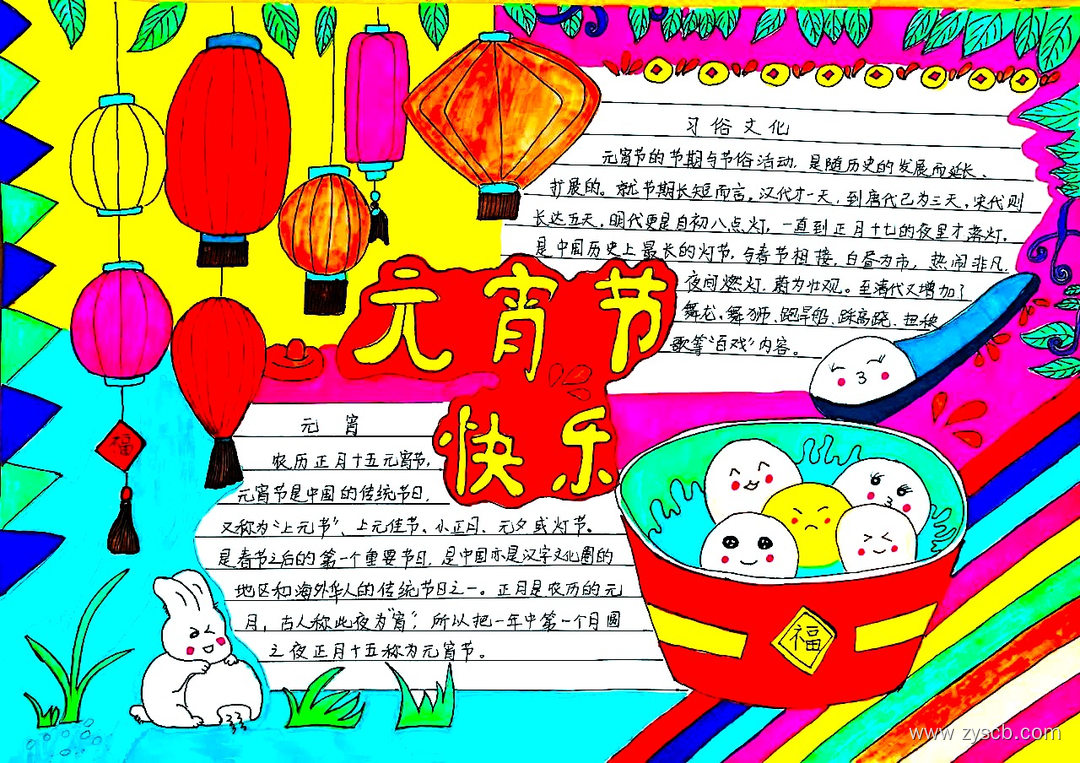 习俗文化
元宵节的节期与节俗活动，是随历史的发展而延长、
扩展的。就节期长短而言，汉代才一天，到唐代已为三天，宋代则
长达五天，明代更是自初八点灯，一直到正月十七的夜里才落灯，
是中国历史上最长的灯节，与春节相接，白昼为市，热闹非凡，
夜间燃灯，蔚为壮观。至清代又增加了
舞龙、舞狮、跑旱船、踩高跷、扭秧
歌等“百戏”内容。
元宵节
快乐
元宵
农历正月十五元宵节，
元宵节是中国的传统节日，
又称为“上元节”、上元佳节、小正月、元夕或灯节。
是春节之后的第一个重要节日，是中国亦是汉字文化圈的
地区和海外华人的传统节日之一。正月是农历的元
月，古人称此夜为“宵”，所以把一年中第一个月圆
之夜正月十五称为元宵节。
福
福
www.zyscb.com